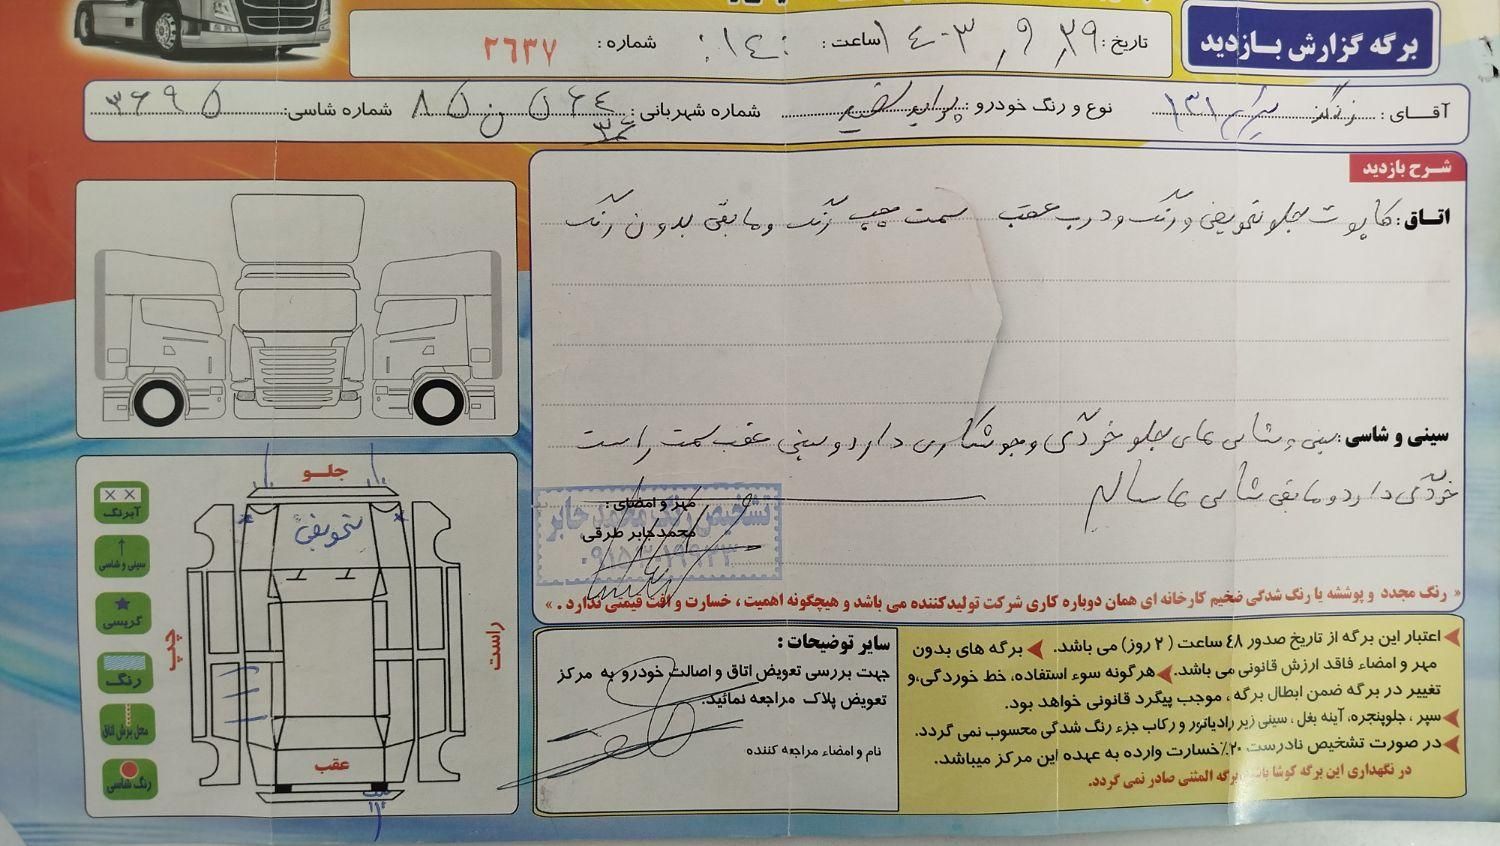 برگه گزارش بازدید
تاریخ: ۱۴۰۳/۹/۲۹ ساعت: ۱۴:۰ شماره: ۲۶۳۷
آقای: نوع و رنگ خودرو: پراید سفید شماره شهربانی: ۵۶۴ ن ۸۵ ۳۶ شماره شاسی: ۳۶۹۵
شرح بازدید
اتاق: کاپوت جلو تعویض و رنگ و درب عقب سمت چپ رنگ و مابقی بدون رنگ
سینی و شاسی: سینی و شاسی های جلو خوردگی و جوشکاری دارد و سینی عقب سمت راست
خوردگی دارد و مابقی شاسی ها سالم
مهر و امضای:
محمدجابر طرقی
تشخیص رنگ محمد جابر
« رنگ مجدد و پوششه یا رنگ شدگی ضخیم کارخانه ای همان دوباره کاری شرکت تولیدکننده می باشد و هیچگونه اهمیت، خسارت و افت قیمتی ندارد. »
جلو
تعویض
آبرنگ
سینی و شاسی
گریسی
رنگ
محل برش اتاق
رنگ شاسی
چپ
راست
عقب
سایر توضیحات:
جهت بررسی تعویض اتاق و اصالت خودرو به مرکز
تعویض پلاک مراجعه نمائید.
نام و امضاء مراجعه کننده
اعتبار این برگه از تاریخ صدور ۴۸ ساعت (۲ روز) می باشد. برگه های بدون
مهر و امضاء فاقد ارزش قانونی می باشد. هرگونه سوء استفاده، خط خوردگی و
تغییر در برگه ضمن ابطال برگه، موجب پیگرد قانونی خواهد بود.
سپر، جلوپنجره، آینه بغل، سینی زیر رادیاتور و رکاب جزء رنگ شدگی محسوب نمی گردد.
در صورت تشخیص نادرست ۲۰٪ خسارت وارده به عهده این مرکز میباشد.
در نگهداری این برگه کوشا باشید برگه المثنی صادر نمی گردد.